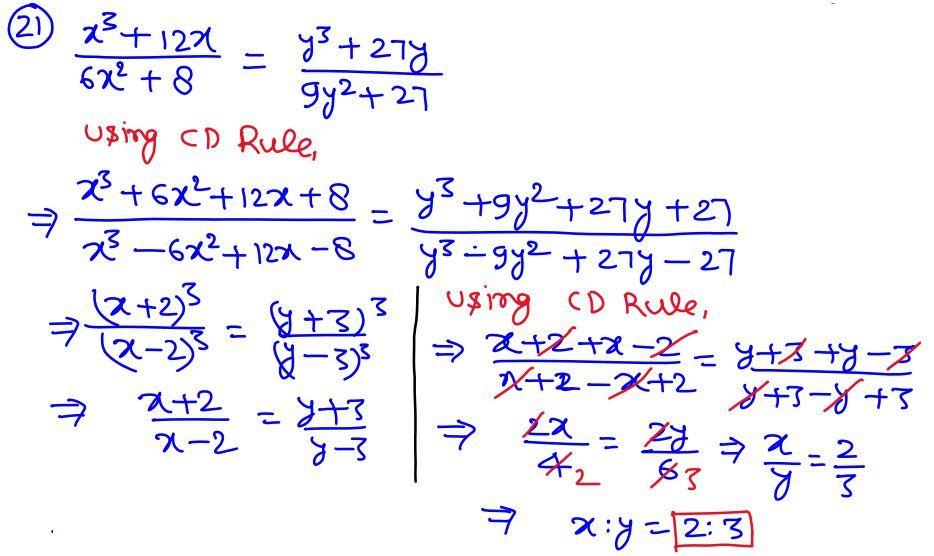 (21) (x³ + 12x)/(6x² + 8) = (y³ + 27y)/(9y² + 27)
using CD Rule,
⇒ (x³ + 6x² + 12x + 8)/(x³ − 6x² + 12x − 8) = (y³ + 9y² + 27y + 27)/(y³ − 9y² + 27y − 27)
⇒ (x+2)³/(x−2)³ = (y+3)³/(y−3)³
⇒ (x+2)/(x−2) = (y+3)/(y−3)
using CD Rule,
⇒ (x+2+x−2)/(x+2−x+2) = (y+3+y−3)/(y+3−y+3)
⇒ 2x/4 2 = 2y/6 3 ⇒ x/y = 2/3
⇒ x:y = 2:3